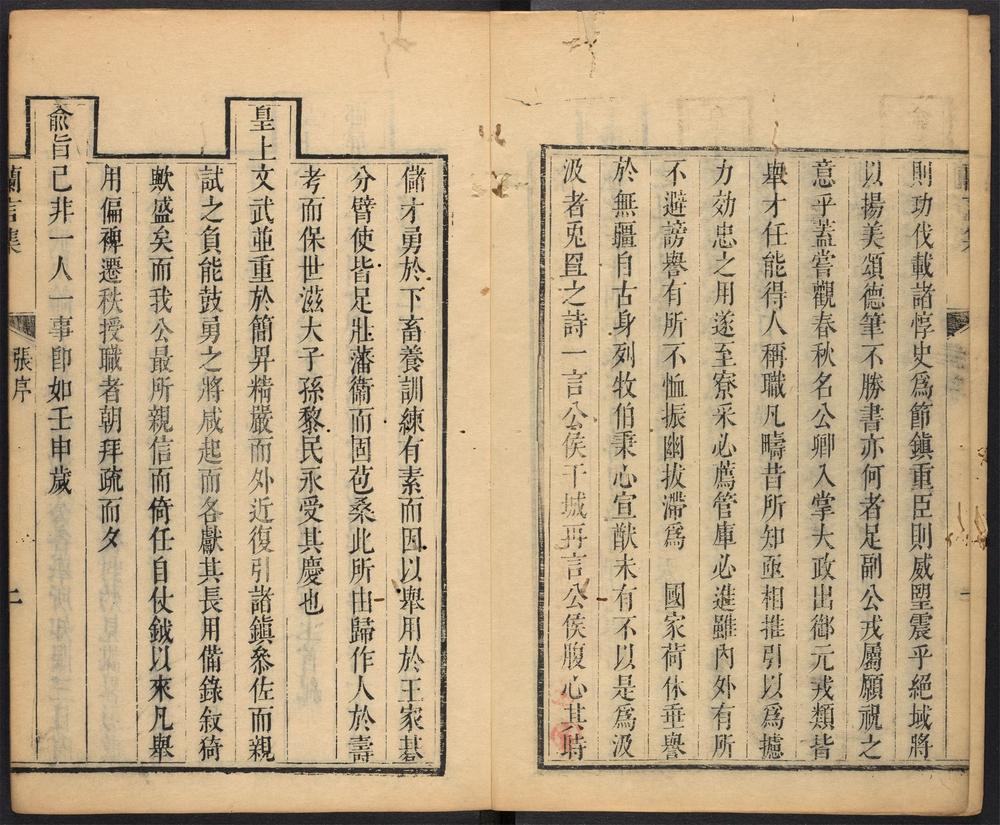 則功伐載諸惇史爲節鎮重臣則威朢震乎絕域將
以揚美頌德筆不勝書亦何者足副公戎屬願視之
意乎蓋嘗觀春秋名公卿入掌大政出御元戎類皆
舉才任能得人稱職凡疇昔所知亟相推引以爲攄
力效忠之用遂至寮采必薦管庫必進雖內外有所
不避謗譽有所不恤振幽拔滯爲　國家荷休垂譽
於無疆自古身列牧伯秉心宣猷未有不以是爲汲
汲者兎罝之詩一言公侯干城再言公侯腹心其時
儲才勇於下畜養訓練有素而因以舉用於王家碁
分臂使皆足壯藩衛而固苞桑此所由歸作人於壽
考而保世滋大子孫黎民永受其慶也
皇上文武並重於簡昇精嚴而外近復引諸鎮叅佐而親
試之負能鼓勇之將咸起而各獻其長用備錄敘猗
歟盛矣而我公最所親信而倚任自仗鉞以來凡舉
用偏裨遷秩授職者朝拜疏而夕
兪旨已非一人一事卽如壬申歲
蘭言集
張序
二